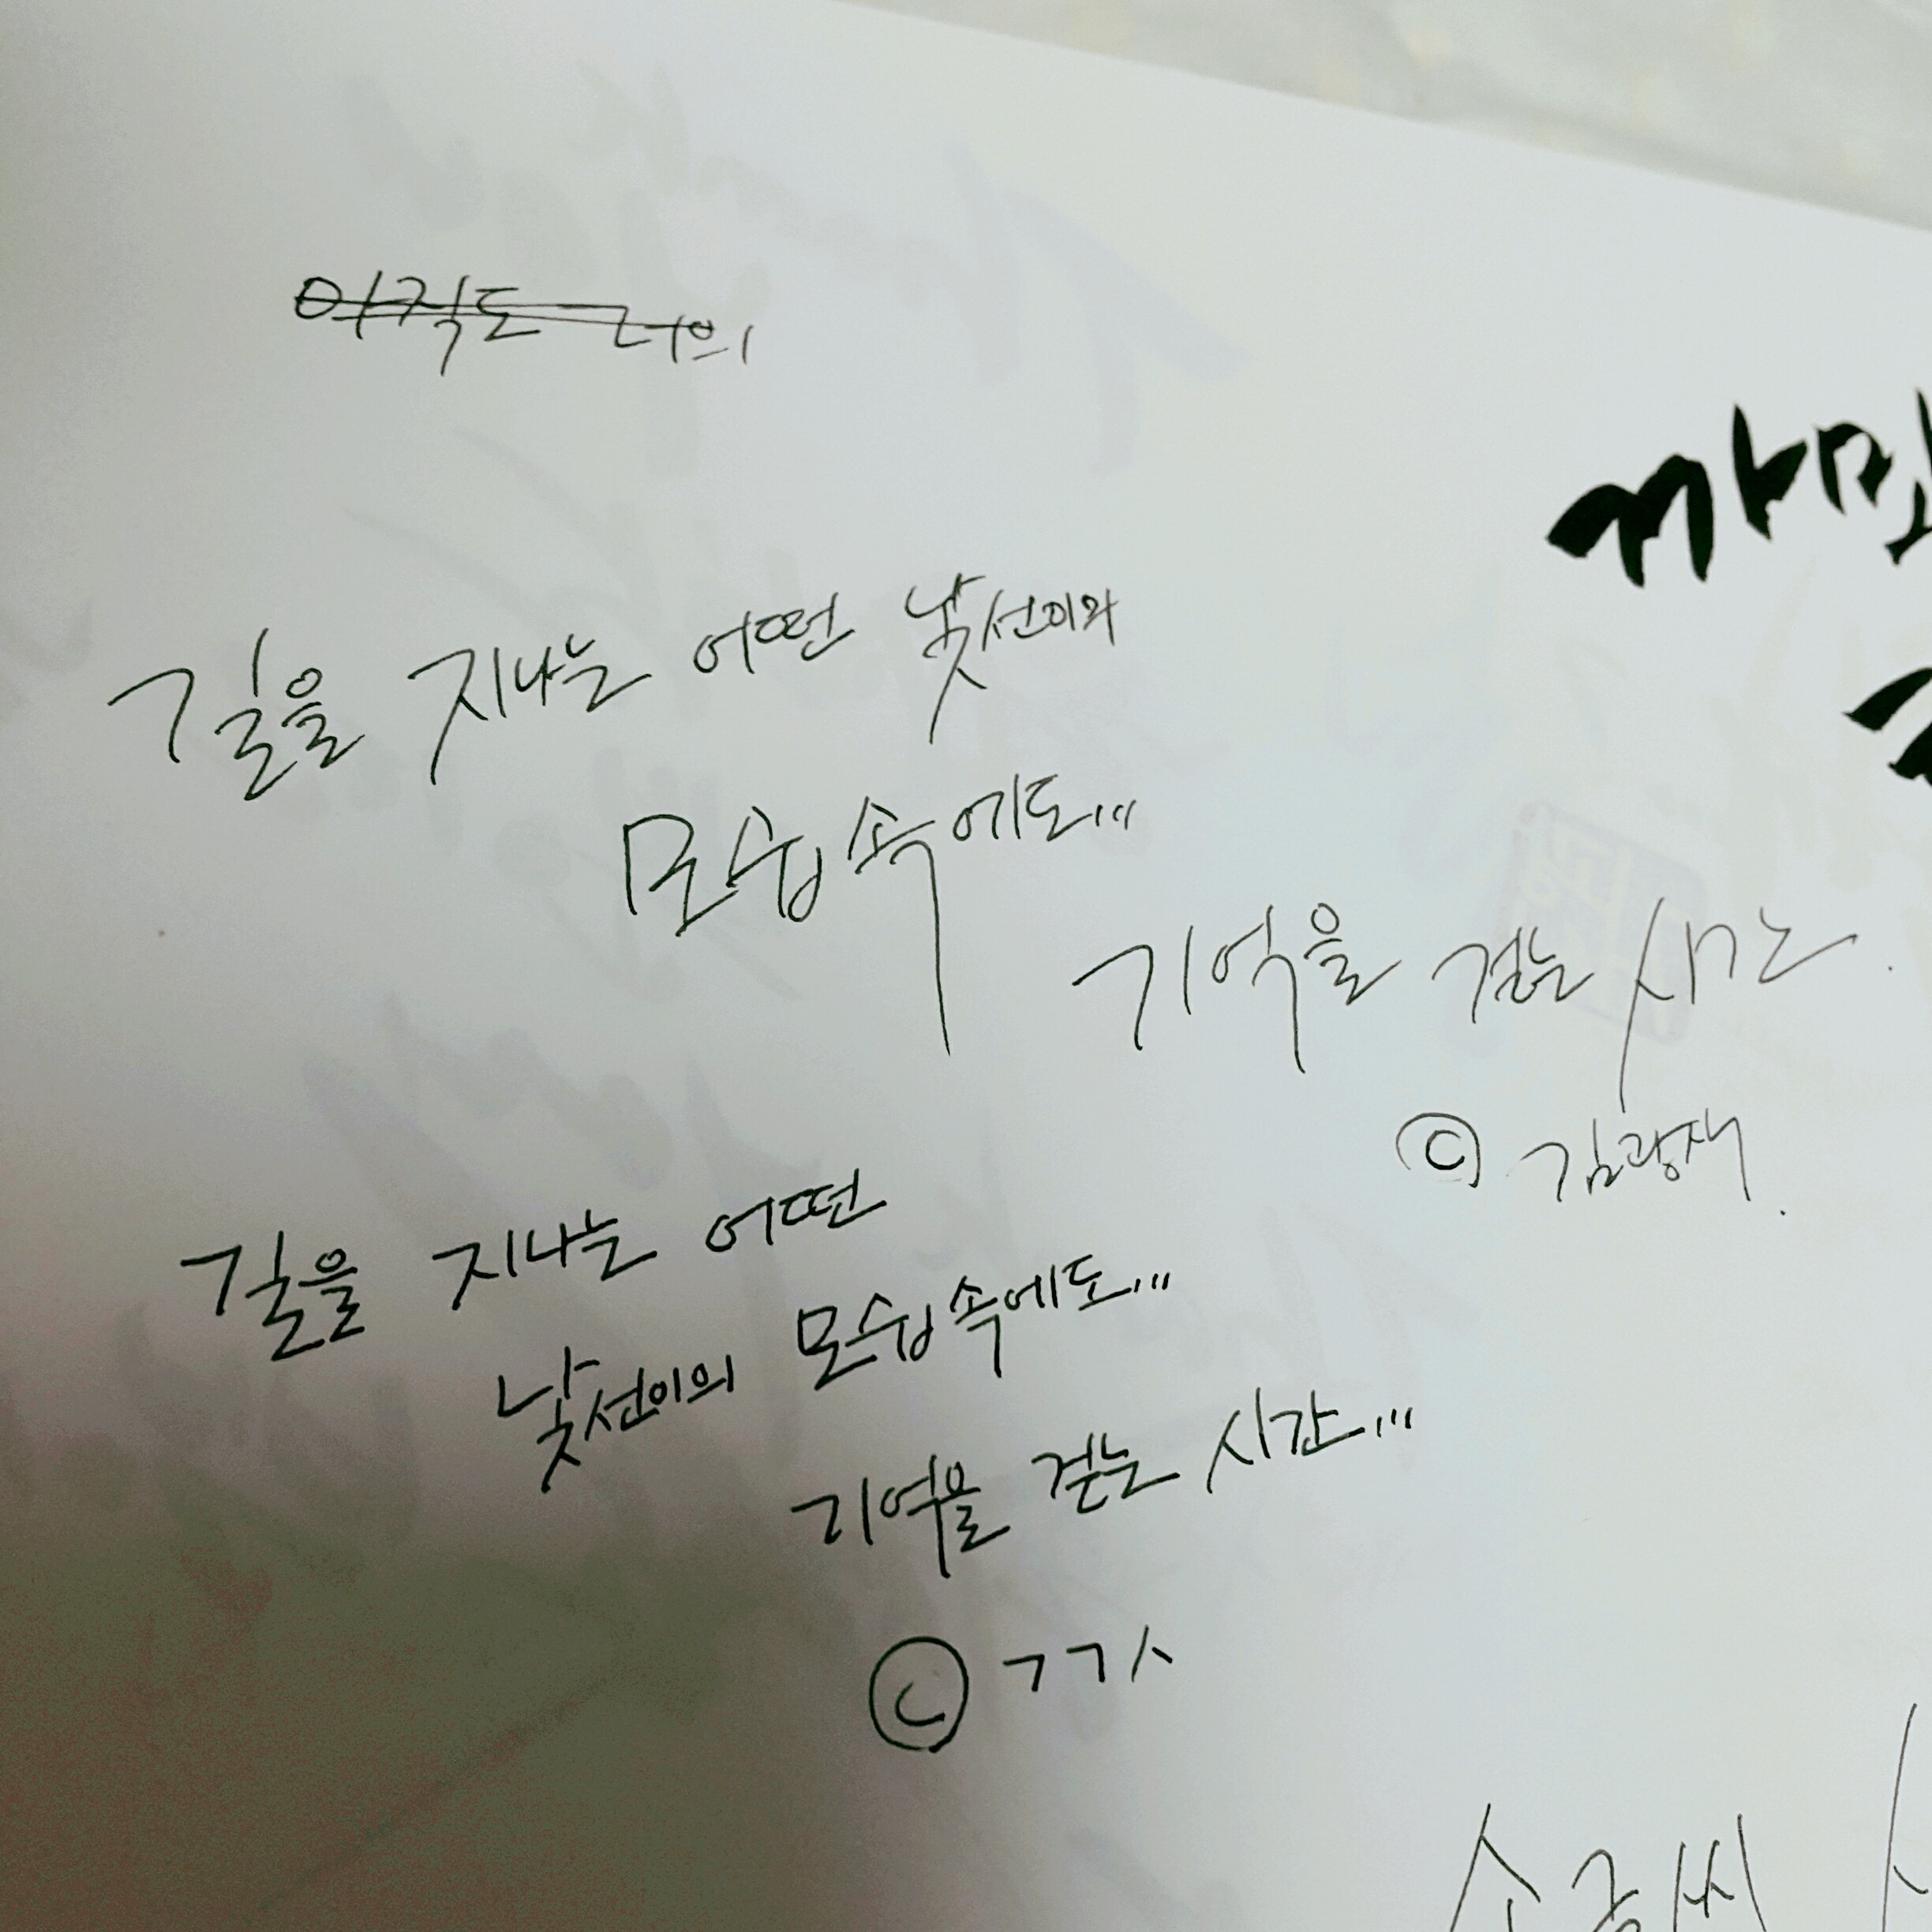 아직도 너의
길을 지나는 어떤 낯선이와
모습 속에도...
기억을 걷는 시간.
ⓒ 김광재.
길을 지나는 어떤
낯선이의 모습 속에도...
기억을 걷는 시간...
ⓒ ㄱㄱㅅ